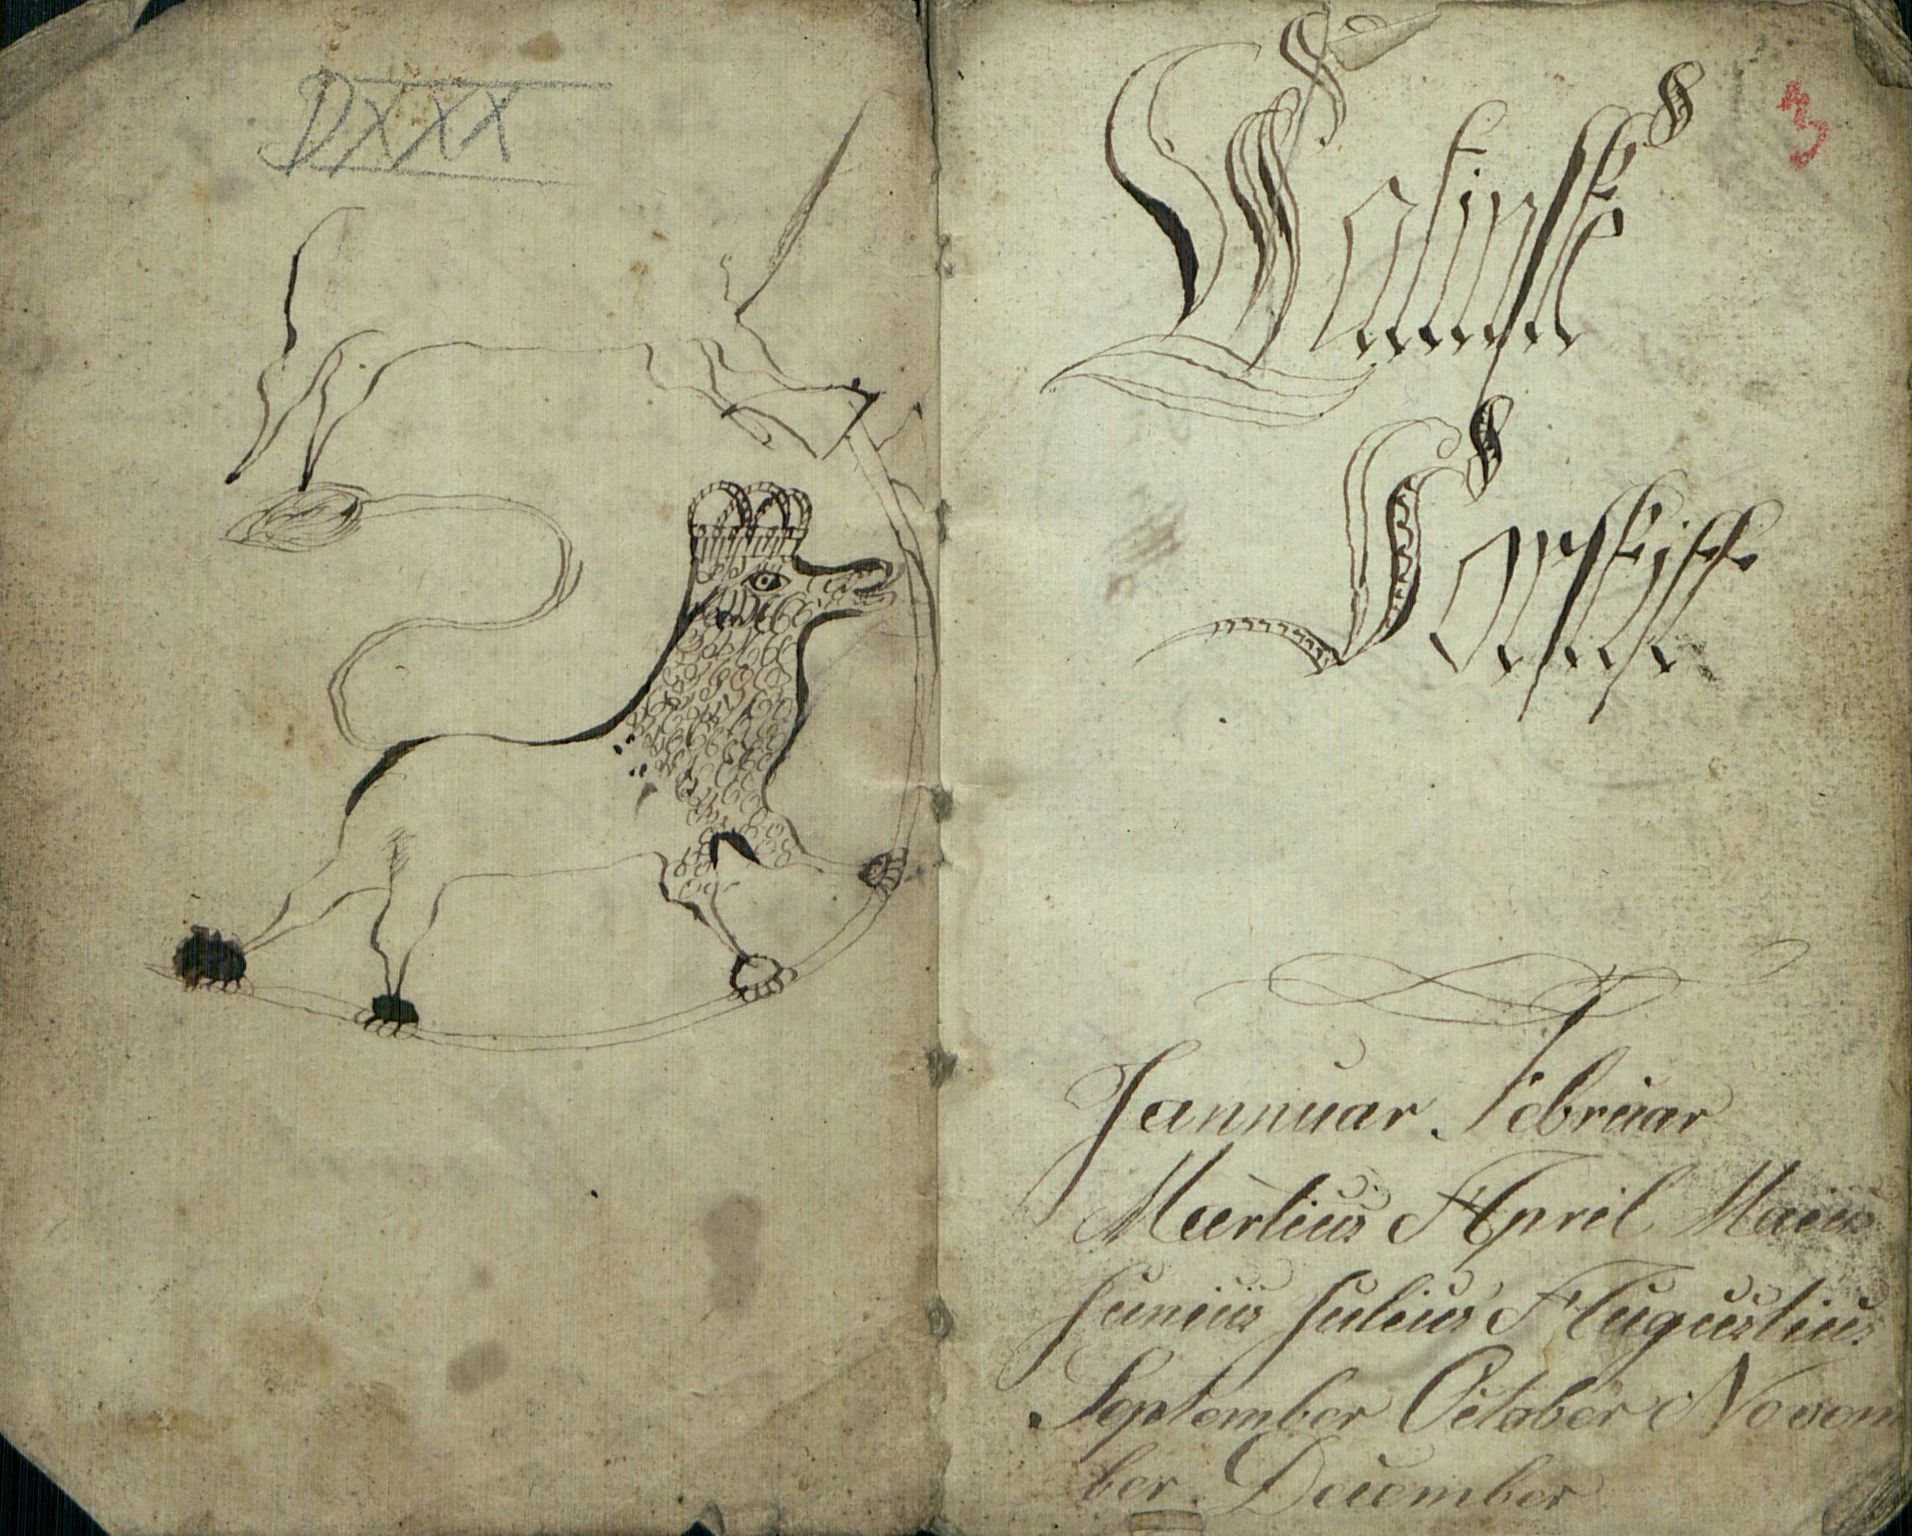 DXXX
3
Latinske
Januar. Februar
Martius April Maius
Junius Julius Augustius
September October Novem
ber. December